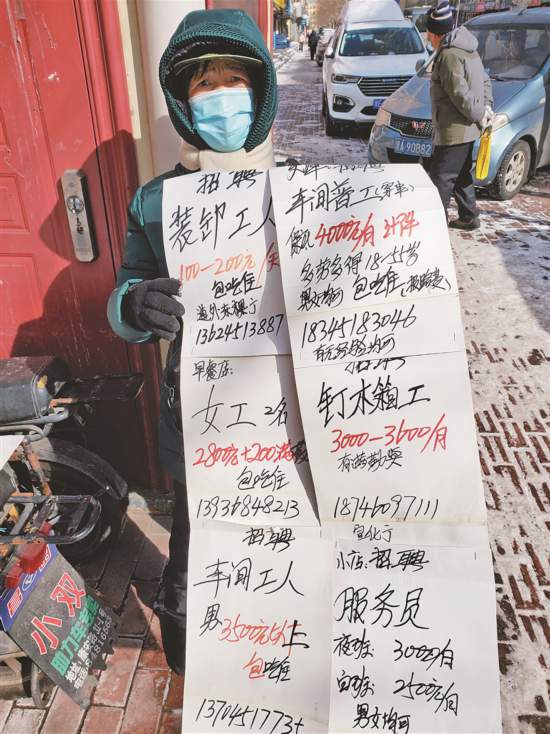 招聘
装卸工人
100-200元/天
包吃住
道外水果厅
13624513887
车间普工(穿串)
保机4000元/月 计件
多劳多得18-55岁
男女均可 包吃住
18345183046
有无经验均可
早餐店:
女工2名
2800元+200
包吃住
13936848213
钉木箱工
3000-3600/月
有满勤奖
18746097111
招聘
车间工人
男3500元以上
包吃住
1370451773
宣化厅
小店:招聘
服务员
夜班:3000/月
白班:2500元/月
男女均可
小双
助力车
A·90882